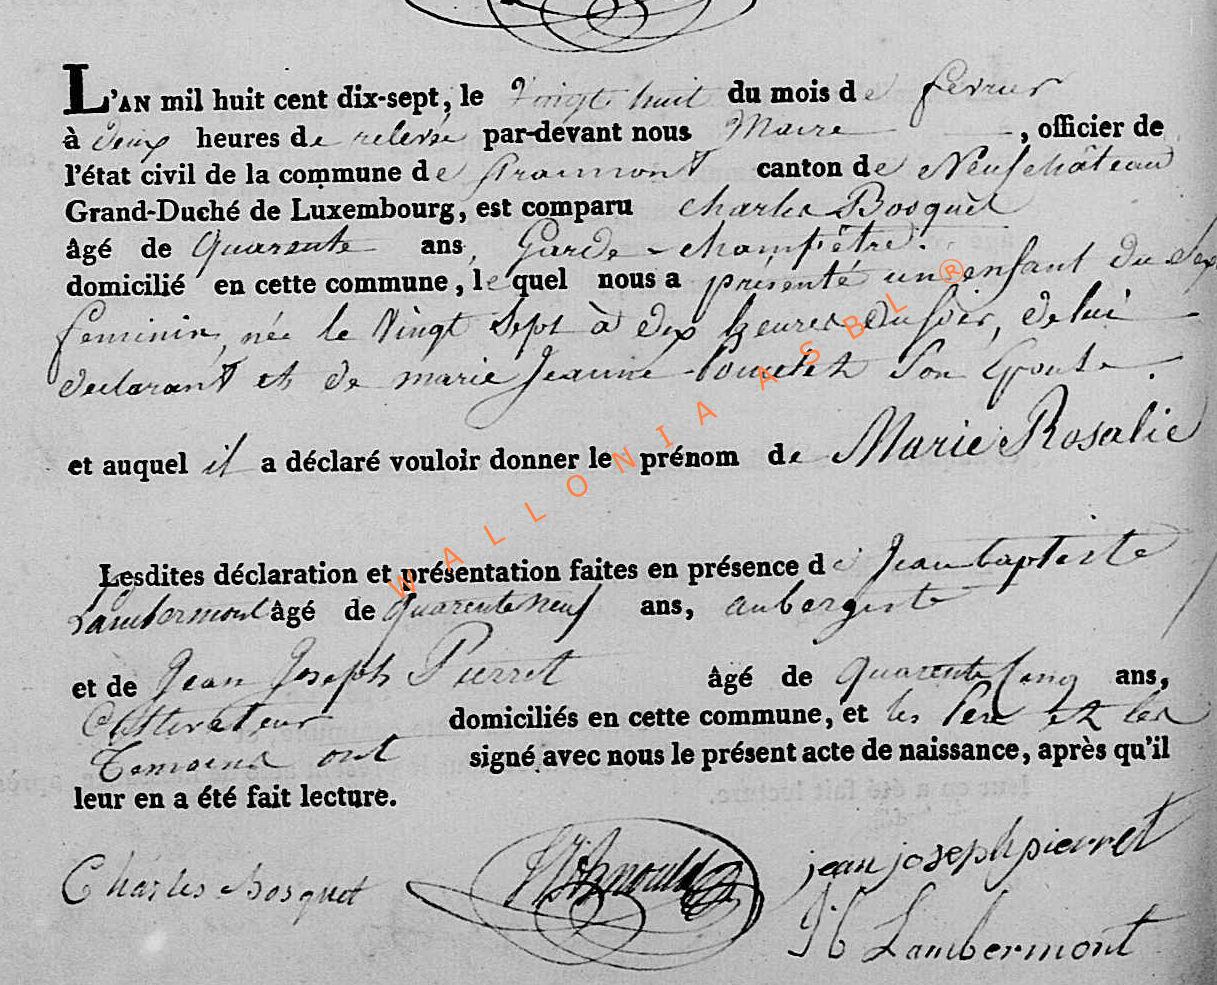 L'AN mil huit cent dix-sept, le Vingt huit du mois de fevrier
à deux heures de relevée par-devant nous Maire, officier de
l'état civil de la commune de Straimont canton de Neufchâteau
Grand-Duché de Luxembourg, est comparu Charles Bosquet
âgé de Quarente ans, Garde-champêtre.
domicilié en cette commune, lequel nous a présenté un enfant du Sex
feminin, née le Vingt Sept à dix heures du soir, de lui
declarant et de marie Jeanne Son Epouse.
et auquel il a déclaré vouloir donner le prénom de Marie Rosalie
Lesdites déclaration et présentation faites en présence de Jean baptiste
Lambermont âgé de quarente neuf ans, aubergiste
et de Jean Joseph Pierret âgé de quarente cinq ans,
Cultivateur domiciliés en cette commune, et les Pere et les
Temoins ont signé avec nous le présent acte de naissance, après qu'il
leur en a été fait lecture.
Charles bosquet
jean joseph pierret
J b Lambermont
WALLONIA ASBL ®